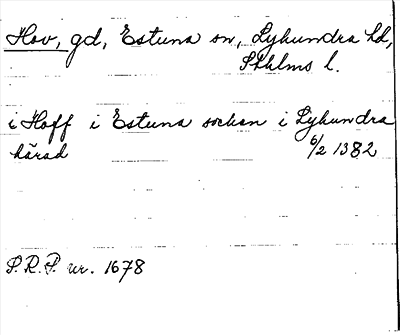 Hov, gd, Estuna sn, Lyhundra hd,
Sthlms l.
i Hoff i Estuna sockan i Lyhundra
härad 6/2 1382
S.R.P. nr. 1678